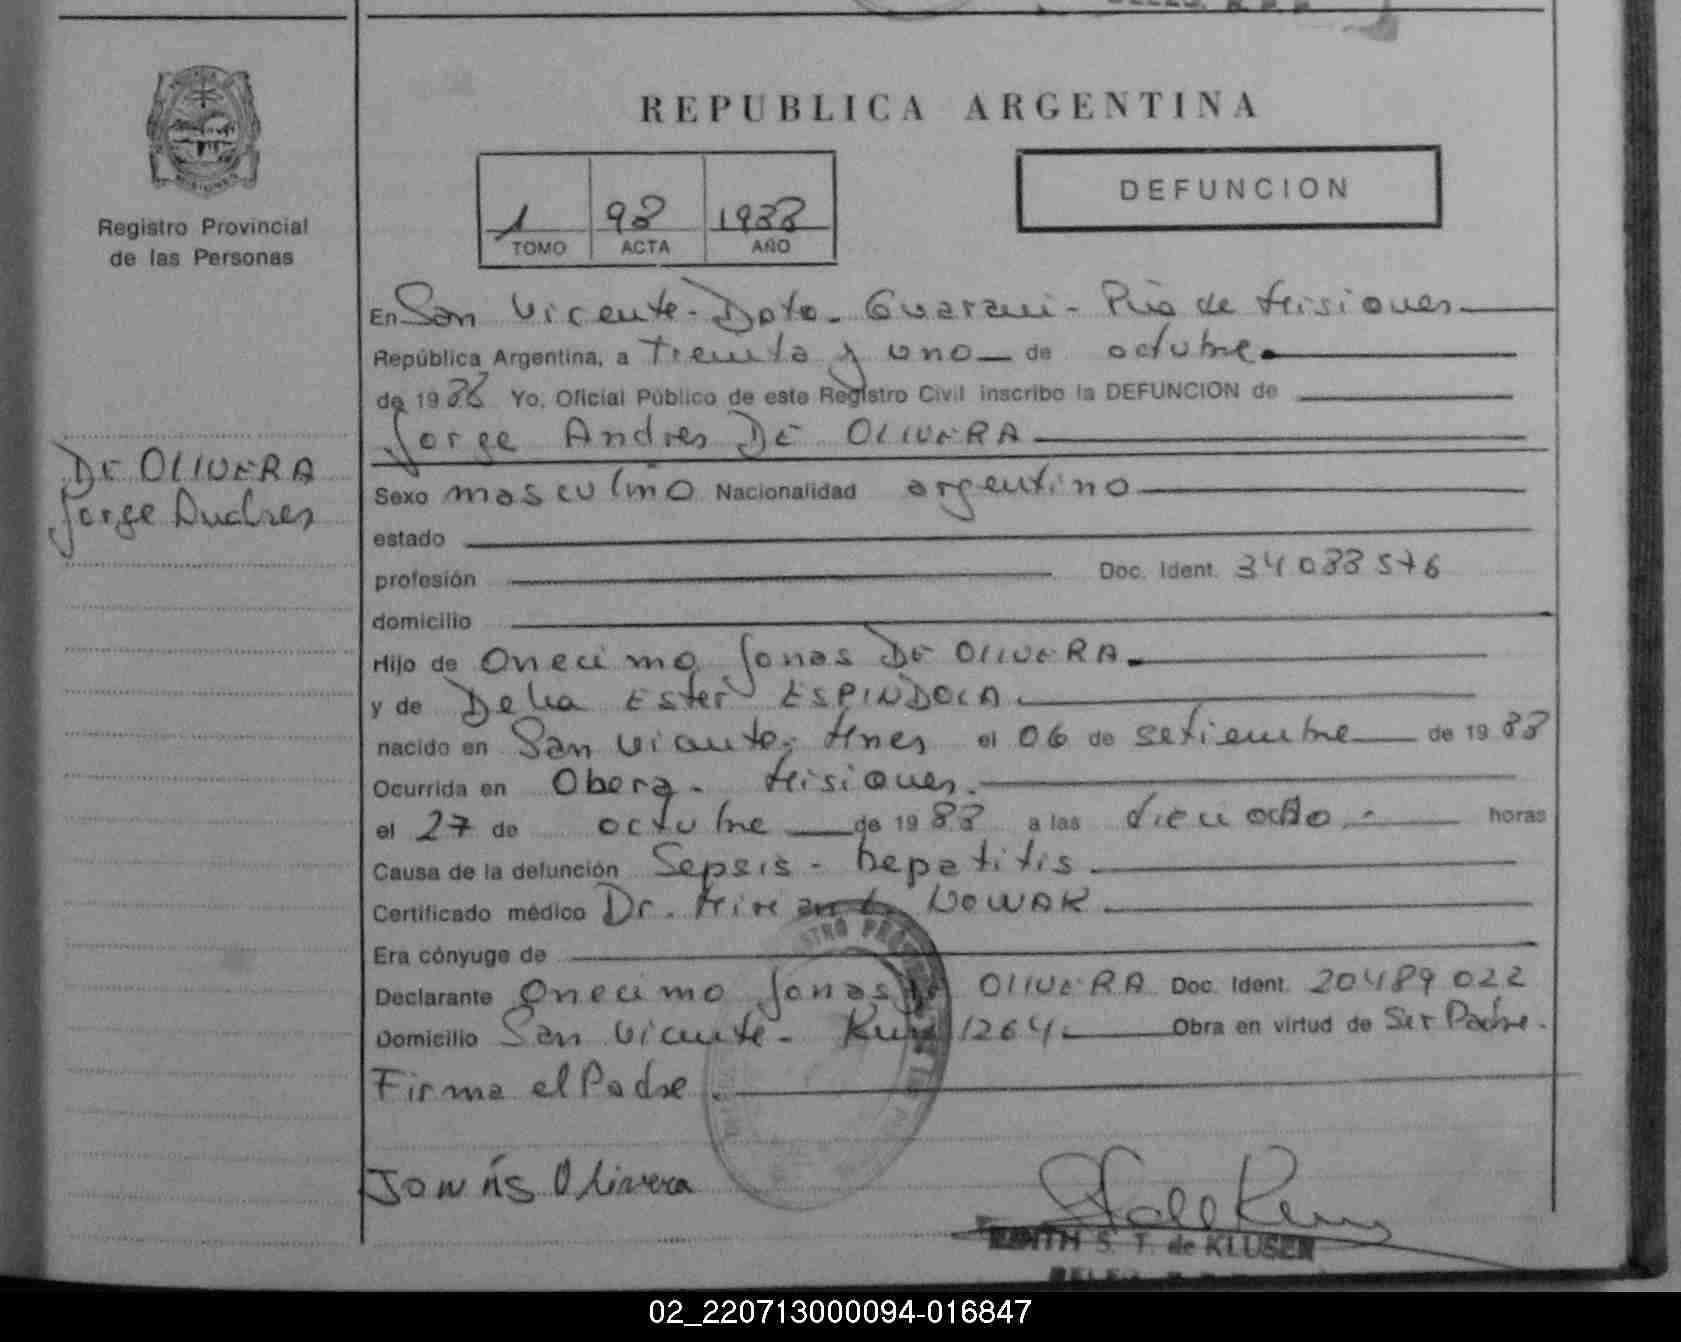 REPUBLICA ARGENTINA
Registro Provincial
de las Personas
1 98 1988
TOMO ACTA AÑO
DEFUNCION
En San Vicente - Dpto. Guarani - Pcia de Misiones
República Argentina, a Treinta y uno de octubre
de 1988 Yo, Oficial Público de este Registro Civil inscribo la DEFUNCION de
Jorge Andres DE OLIVERA
DE OLIVERA
Jorge Andres
Sexo masculino Nacionalidad argentino
estado
profesión Doc. Ident. 34088576
domicilio
Hijo de Onecimo Jonas DE OLIVERA
y de Delia Ester ESPINDOLA
nacido en San Vicente - Mnes el 06 de setiembre de 1988
Ocurrida en Obera - Misiones.
el 27 de octubre de 1988 a las dieciocho horas
Causa de la defunción Sepsis - hepatitis
Certificado médico Dr. Miriam NOWAK
Era cónyuge de
Declarante Onecimo Jonas DE OLIVERA Doc. Ident. 20489022
Domicilio San Vicente - Km 1264 Obra en virtud de Ser Padre.
Firma el Padre
Jonás Olivera
EDITH S. T. de KLUSEN
02_220713000094-016847